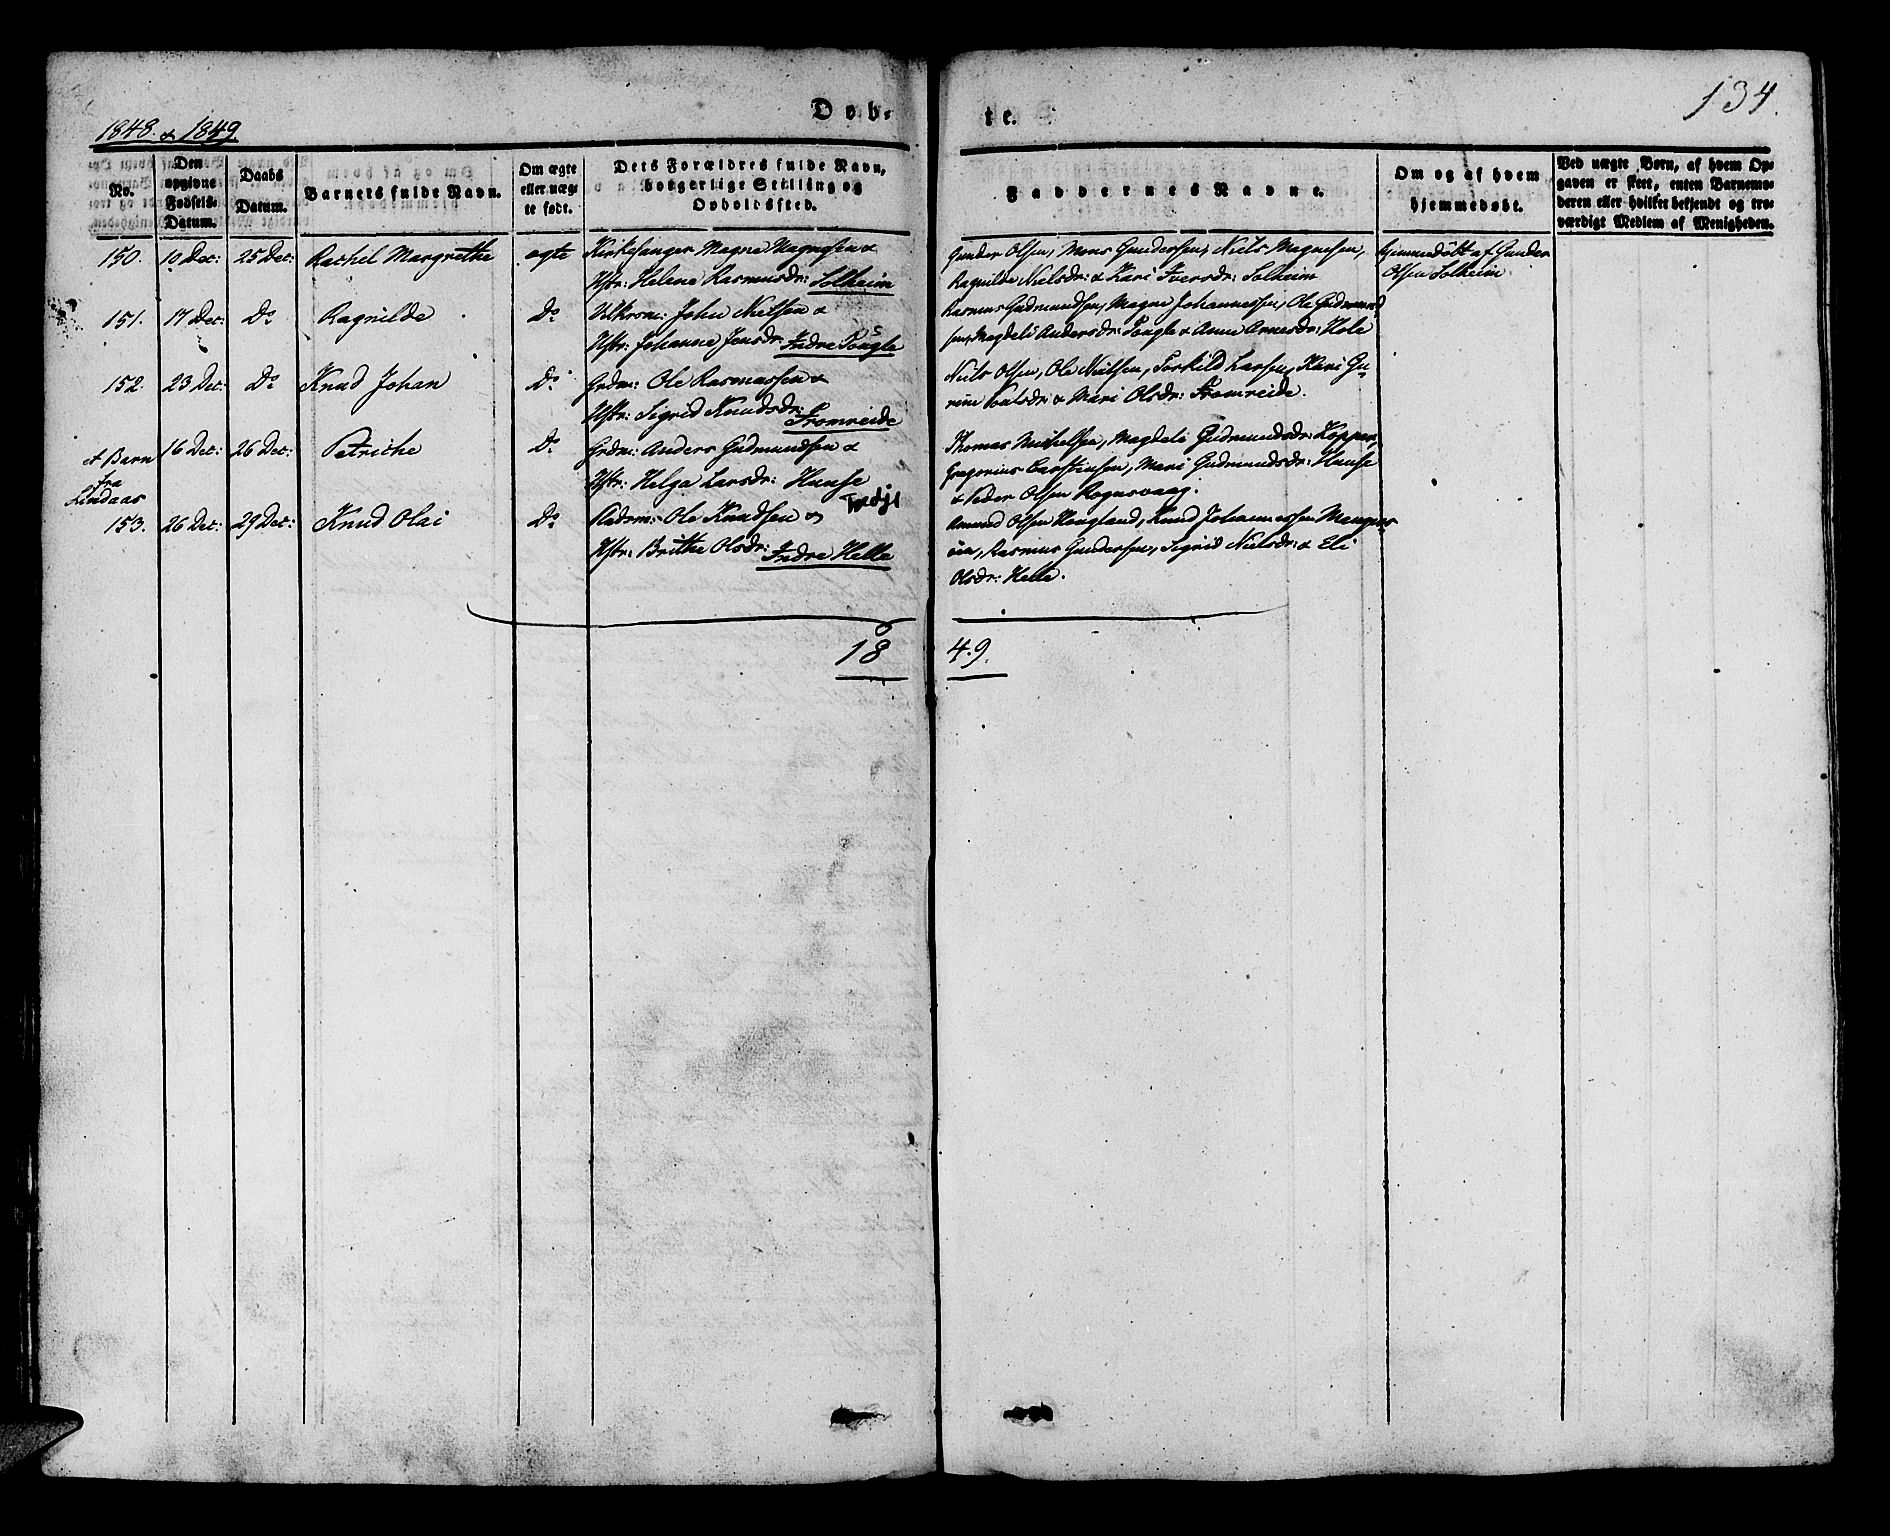 134.
1848. & 1849
Døb-
te.
No.
Den opgivne Fødsels-Datum.
Daabs Datum.
Barnets fulde Navn.
Om ægte eller uæg-te født.
Dets Forældres fulde Navn, borgerlige Stilling og Opholdssted.
Faddernes Navne.
Om og af hvem hjemmedøbt.
Ved uægte Børn, af hvem Op-
gaven er skeet, enten Barnemo-
deren eller hvilket bekjendt og tro-
værdigt Medlem af Menigheden.
150. 10 Dec: 25 Dec: Rachel Margrethe ægte Kirkesanger Magne Magnesen &
Hstr: Helene Rasmusdr: Solheim
Gunder Olsen, Mons Gundersen, Niels Magnesen,
Ragnilde Nielsdr: & Kari Iversdr: Solheim
hjemmedøbt af Gunder
Olsen Solheim
151. 17 Dec: Do Ragnilde Do John Nielsen &
Hstr: Johanne Jensdr: Indre
Rasmus Gudmundsen, Magne Johannessen, Ole Gudmund
sen, Magdeli Andersdr: & Anne Arnesdr: Hole
152. 23 Dec: Do Knud Johan Do Grdm: Ole Rasmussen &
Hstr: Sigrid Knudsdr: Fromreide
Niels Olsen, Ole Nielsen, Torkild Larsen, Kari Gu-
& Mari Olsdr: Fromreide.
et Barn
fra
Lindaas
16 Dec: 26 Dec: Petriche Do Grdm: Anders Gudmundsen &
Hstr: Helga Larsdr: Hunse
Thomas Mikelsen, Magdeli Gudmundsdr:
Gregorius Carstensen, Mari Gudmundsdr: Hunse
& Peder Olsen Rognevaag.
153. 26 Dec: 29 Dec: Knud Olai Do Ole Knudsen &
Hstr: Brithe Olsdr: Indre Helle
Amund Olsen Hougland, Knud Johannessen
Rasmus Gundersen, Sigrid Nielsdr: & Eli
Olsdr: Helle.
18 49.